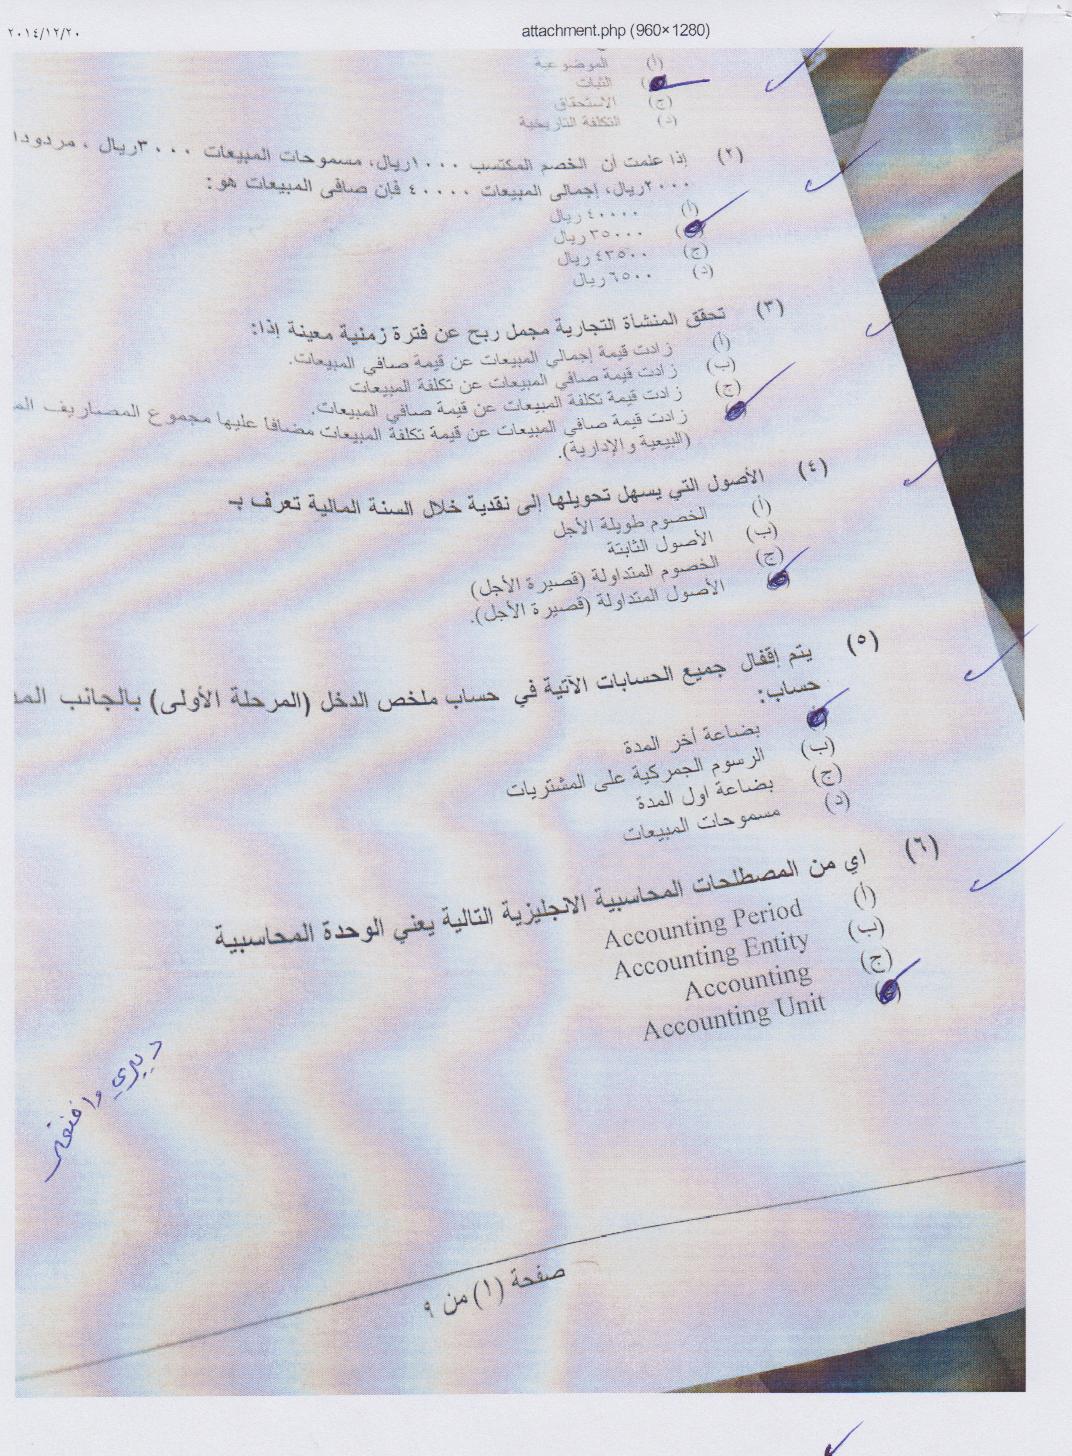 ٢٠١٤/١٢/٢٠ attachment.php (960×1280)
(أ) الموضوعية
الثبات
(ج) الاستحقاق
(د) التكلفة التاريخية
(٢) إذا علمت أن الخصم المكتسب ١٠٠٠ريال، مسموحات المبيعات ٣٠٠٠ريال ، مردودا
٢٠٠٠ريال، إجمالي المبيعات ٤٠٠٠٠ فإن صافى المبيعات هو:
(أ) ٤٠٠٠٠ ريال
٣٥٠٠٠ ريال
(ج) ٤٣٥٠٠ ريال
(د) ٦٥٠٠ ريال
(٣) تحقق المنشأة التجارية مجمل ربح عن فترة زمنية معينة إذا:
(أ) زادت قيمة إجمالي المبيعات عن قيمة صافي المبيعات.
(ب) زادت قيمة صافي المبيعات عن تكلفة المبيعات
(ج) زادت قيمة تكلفة المبيعات عن قيمة صافي المبيعات.
زادت قيمة صافي المبيعات عن قيمة تكلفة المبيعات مضافا عليها مجموع المصاريف
(البيعية والإدارية).
(٤) الأصول التي يسهل تحويلها إلى نقدية خلال السنة المالية تعرف بـ
(أ) الخصوم طويلة الأجل
(ب) الأصول الثابتة
(ج) الخصوم المتداولة (قصيرة الأجل)
الأصول المتداولة (قصيرة الأجل).
(٥) يتم إقفال جميع الحسابات الآتية في حساب ملخص الدخل (المرحلة الأولى) بالجانب
حساب:
بضاعة أخر المدة
(ب) الرسوم الجمركية على المشتريات
(ج) بضاعة اول المدة
(د) مسموحات المبيعات
(٦) اي من المصطلحات المحاسبية الانجليزية التالية يعني الوحدة المحاسبية
(أ) Accounting Period
(ب) Accounting Entity
(ج) Accounting
Accounting Unit
صفحة (١) من ٩